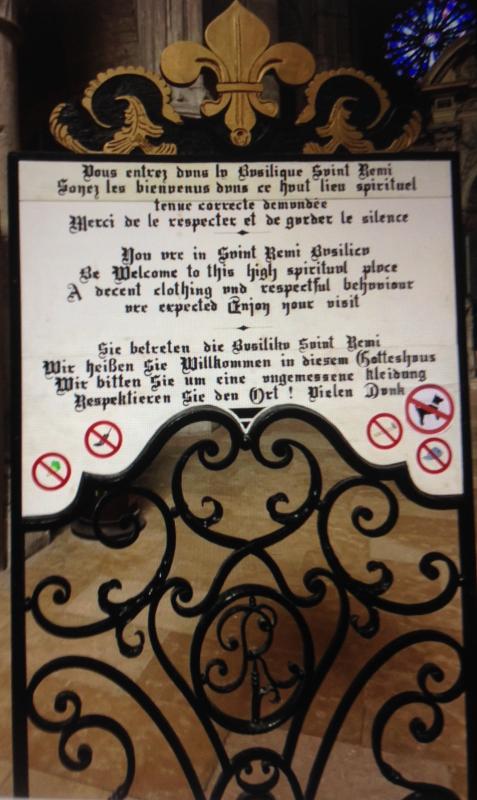 Vous entrez dans la Basilique Saint Remi
Soyez les bienvenus dans ce haut lieu spirituel
tenue correcte demandée
Merci de le respecter et de garder le silence
You are in Saint Remi Basilica
Be Welcome to this high spiritual place
A decent clothing and respectful behaviour
are expected Enjoy your visit
Sie betreten die Basilika Saint Remi
Wir heißen Sie Willkommen in diesem Gotteshaus
Wir bitten Sie um eine angemessene Kleidung
Respektieren Sie den Ort ! Vielen Dank